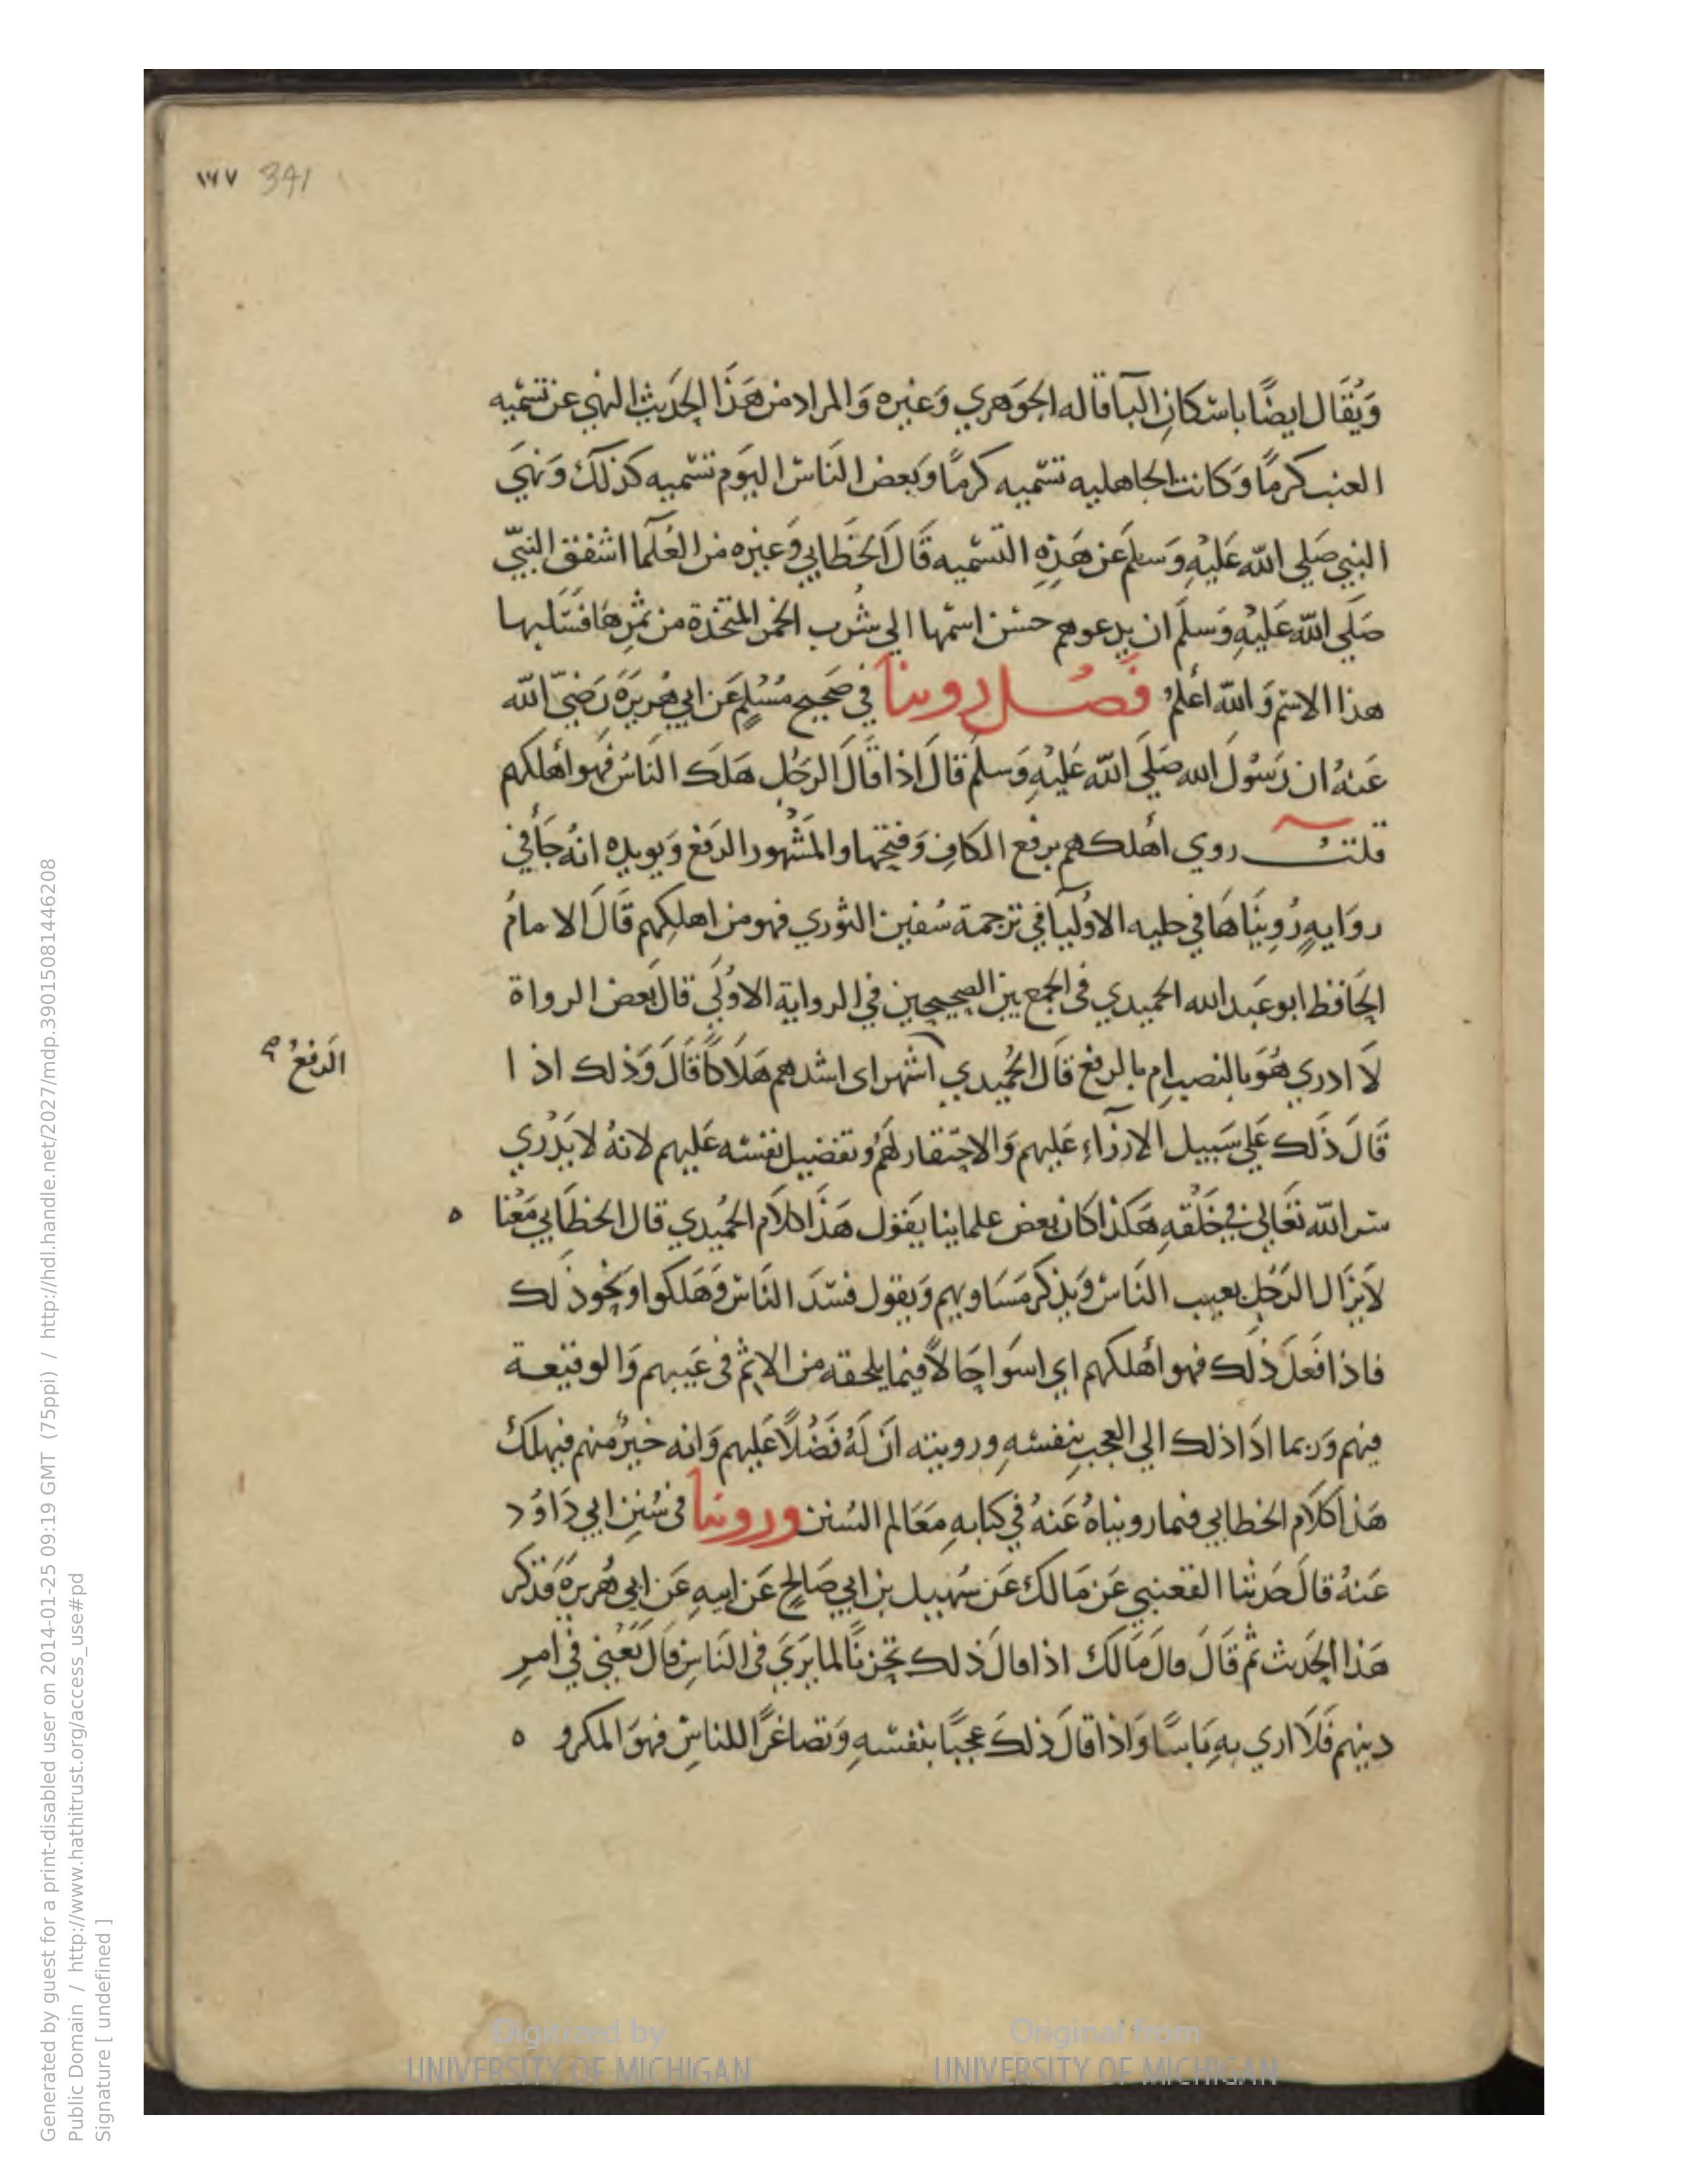 ١٧٧ 341
وَيُقَال ايضًا باسْكانِ البآ قاله الجَوهري وَغيْره وَالمراد من هَذَا الحَديث النهي عن تسْميه
العنب كرمًا وَكانت الجاهليه تسْميه كرمًا وَبَعض الناسْ اليَوم تسْميه كذلك وَنهيَ
النبي صَلي الله عَليْهِ وَسلمَ عَن هَذِهِ التسْميه قَالَ الخَطابي وَغيْره من العُلمآ اشفق النبيّ
صَلي الله عَليْهِ وَسلمَ ان يدعوهم حسْن اسْمها الي شُرب الخمر المتخذة من ثمْرِهَا فسَلبها
هذا الاسْم وَالله أعلمُ فَصْل روينا في صَحيح مُسْلمٍ عَن ابي هُريرَة رَضيَ الله
عَنهُ ان رَسُول الله صَلي الله عَليْهِ وَسلمَ قالَ اذا قالَ الرجُل هَلك الناسُ فهو أهلكهم
قلتُ روي أهلكهم برفع الكافِ وَفتحها والمَشْهور الرفع وَيويده انهُ جَآ في
روَايهٍ رُوينَاهَا في حليه الاوْليآ في ترجمة سُفين الثوري فهو من اهلكِهم قَالَ الامامُ
الحَافظ ابو عَبد الله الحميدي في الجمع بين الصحيحين في الرواية الاولَي قالَ بَعض الرواة
لَا ادري هُوَ بالنصب ام بالرفع قَال الحُميدي اشهر اى اشدهم هَلَاكًا قَالَ وَذلك اذا
الرفعُ
قَالَ ذَلك عَلي سَبيل الازرآءِ عَليهم وَالاحتقار لهُم وتفضيل نفسْه عَليهم لانهُ لا يَدْري
سر الله تعَالي في خَلْقهِ هَكذا كان بعض علماينا يقول هَذَا كلَام الحُميدي قال الخطَابي مَعْنا ه
لَا يزَال الرَجُل يعيب الناسْ وَيذكر مَسَاويهم وَيقول فسَدَ الناسْ وَهَلكوا وَنحوَ ذلك
فاذا فعَلَ ذلك فهو أهلكهم اي اسوَا حَالًا فيما يلحقه من الاثم في عَيبهم وَالوقيعة
فيهم وَربما ادَاذلك الي العجبِ بنفسْهِ ورويته ان لَهُ فَضْلًا عَليهم وَانه خيرٌ منهم فيهلكُ
هَذا كلَام الخطابي فيما رويناهُ عَنهُ في كتابهِ مَعَالم السُنن وروينا في سُننِ ابي دَاوُد
عَنهُ قالَ حَدثنا القعنبي عَن مَالك عَن سُهيل بن ابي صَالح عَن ابيهِ عَن ابي هُريرَة فذكر
هَذا الحَديث ثم قَالَ قالَ مَالك اذا قالَ ذلك تحزنًا لما يَرَي في الناسِ قالَ يَعْني في امرِ
دينهم فَلَا اري بهِ بَاسًا وَاذا قالَ ذلكَ عجبًا بنفسْهِ وَتصاغرًا للناسْ فهوَ المكرو ه
Generated by guest for a print-disabled user on 2014-01-25 09:19 GMT (75ppi) / http://hdl.handle.net/2027/mdp.39015081446208
Public Domain / http://www.hathitrust.org/access_use#pd
Signature [ undefined ]
Digitized by
UNIVERSITY OF MICHIGAN
Original from
UNIVERSITY OF MICHIGAN